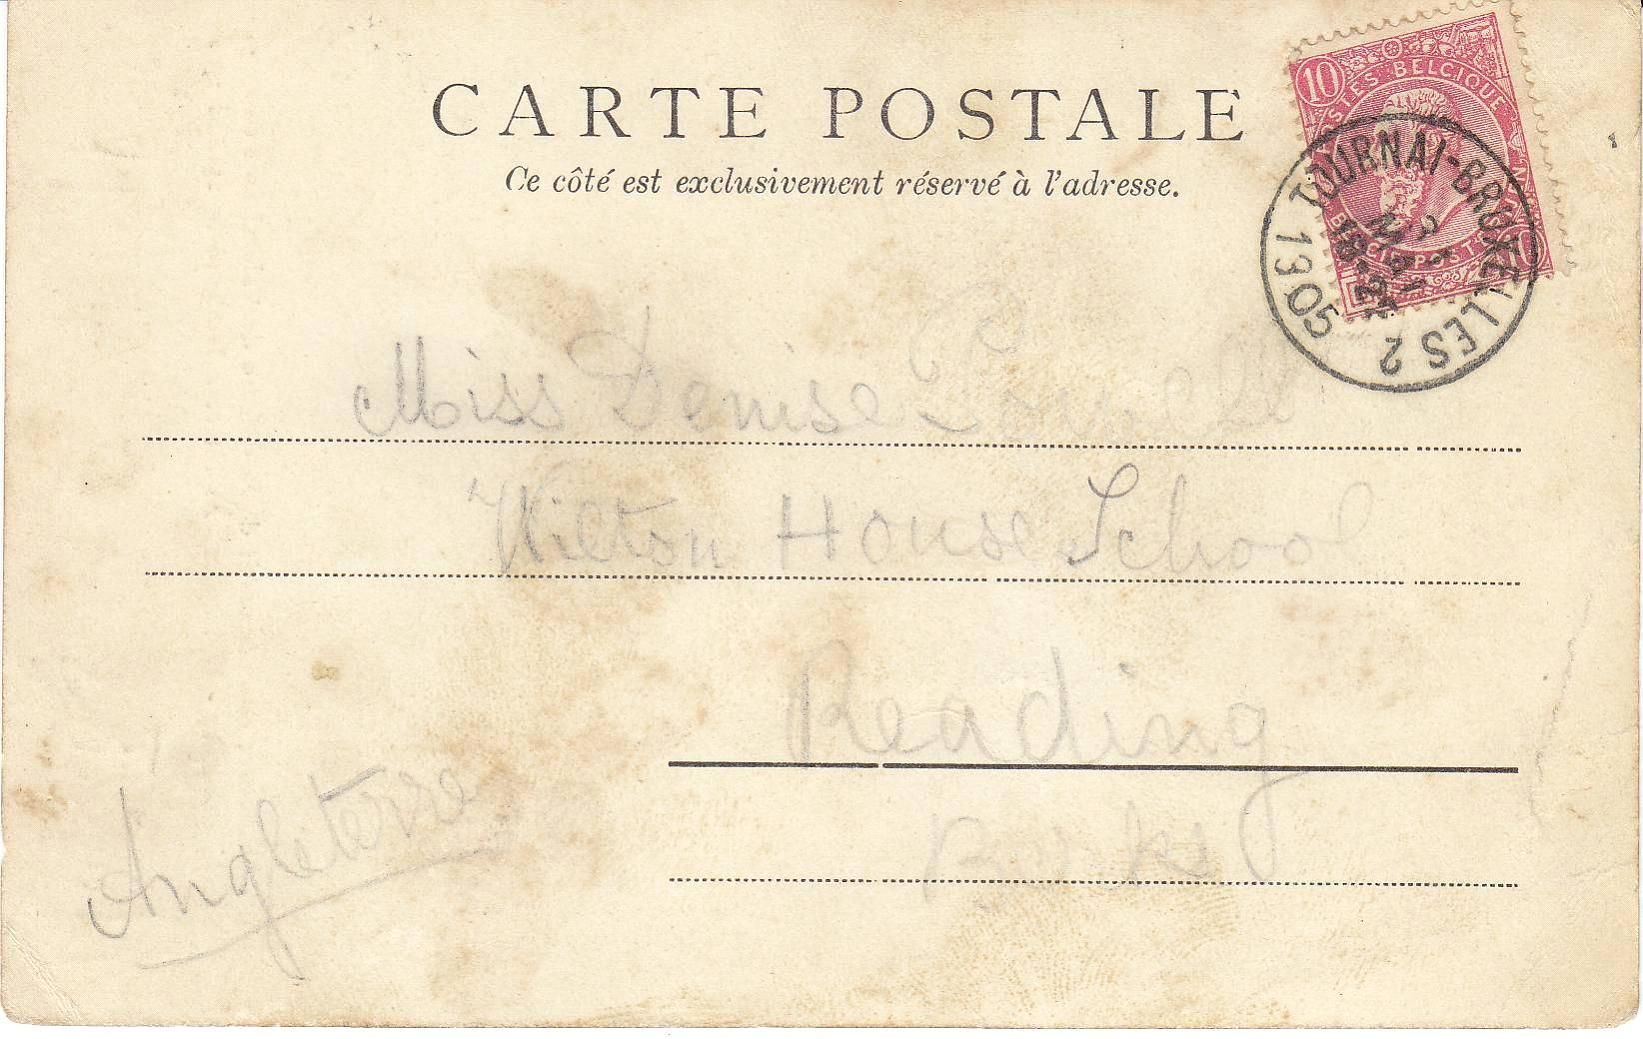 CARTE POSTALE
Ce côté est exclusivement réservé à l'adresse.
10
POSTES BELGIQUE
TOURNAI-BRUXELLES 2
MAI
1905
Miss Denise Powell
Wilton House School
Reading
Berks
Angleterre